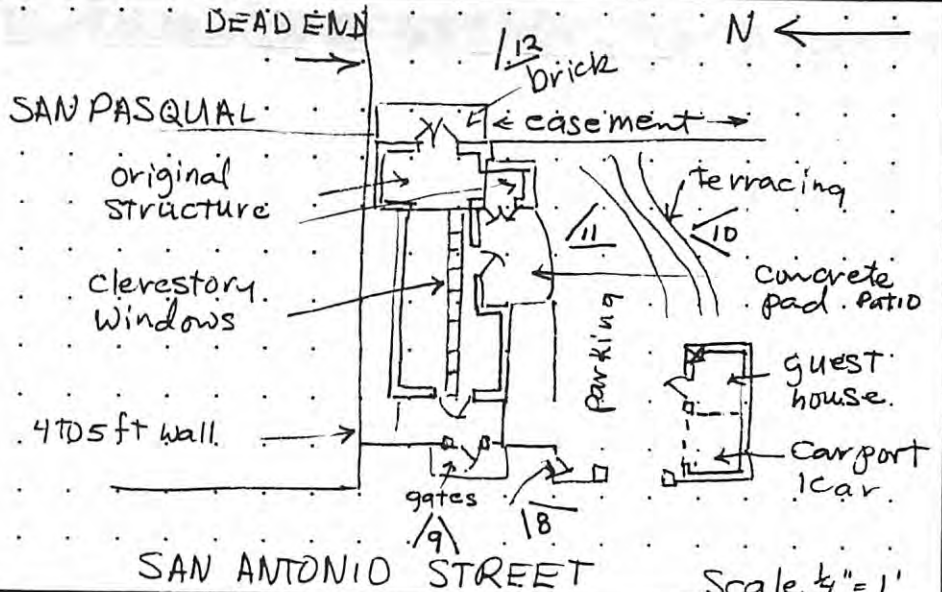 DEAD END
N
12
brick
SAN PASQUAL
easement
original
structure
terracing
10
11
clerestory
windows
concrete
pad. PATIO
parking
guest
house.
4 TO 5 ft wall.
Carport
1 car
gates
18
9
SAN ANTONIO STREET
Scale 1/4" = 1'